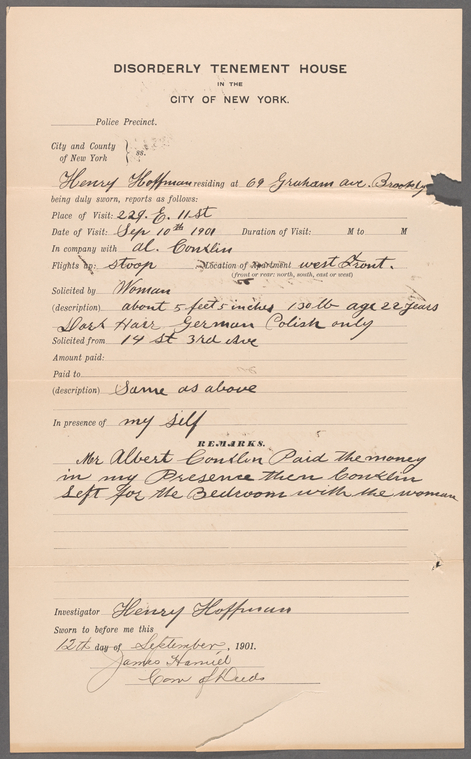 DISORDERLY TENEMENT HOUSE
IN THE
CITY OF NEW YORK.
Police Precinct.
City and County
of New York } ss.
Henry Hoffman residing at 69 Graham ave. Brooklyn
being duly sworn, reports as follows:
Place of Visit: 229. E. 11 st
Date of Visit: Sep 10th 1901 Duration of Visit: M to M
In company with al. Conklin
Flights up: stoop Location of Apartment west Front.
(front or rear: north, south, east or west)
Solicited by Woman
(description) about 5 feet 5 inches 130 lb age 22 years
Dark Hair German Polish only
Solicited from 14 st 3rd Ave
Amount paid:
Paid to
(description) Same as above
In presence of my self
REMARKS.
Mr Albert Conklin Paid the money
in my Presence then Conklin
Left for the Bedroom with the woman
Investigator Henry Hoffman
Sworn to before me this
12th day of September, 1901.
James Hamiel
Com of Deeds